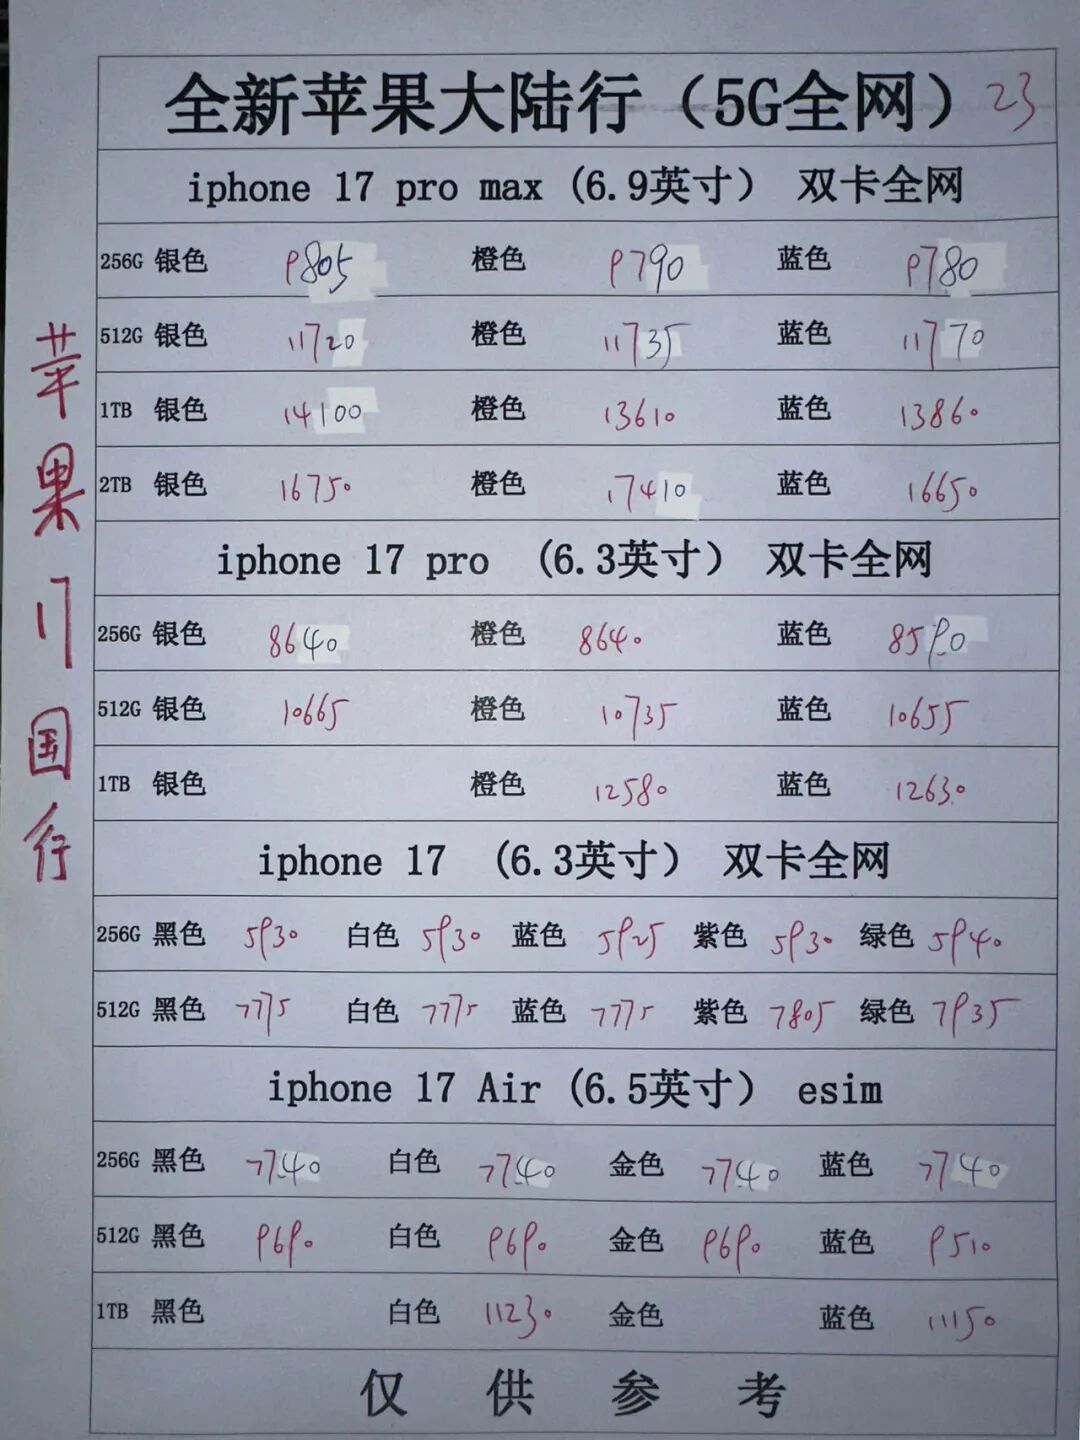 全新苹果大陆行（5G全网） 23
iphone 17 pro max (6.9英寸） 双卡全网
256G 银色 9805 橙色 9790 蓝色 9780
512G 银色 11720 橙色 11735 蓝色 11770
1TB 银色 14100 橙色 13610 蓝色 13860
2TB 银色 16750 橙色 17410 蓝色 16650
iphone 17 pro （6.3英寸） 双卡全网
256G 银色 8640 橙色 8640 蓝色 8590
512G 银色 10665 橙色 10735 蓝色 10655
1TB 银色 橙色 12580 蓝色 12630
iphone 17 （6.3英寸） 双卡全网
256G 黑色 5930 白色 5930 蓝色 5925 紫色 5930 绿色 5940
512G 黑色 7775 白色 7775 蓝色 7775 紫色 7805 绿色 7935
iphone 17 Air (6.5英寸） esim
256G 黑色 7740 白色 7740 金色 7740 蓝色 7740
512G 黑色 9690 白色 9690 金色 9690 蓝色 9510
1TB 黑色 白色 11230 金色 蓝色 11150
仅供参考
苹果17国行